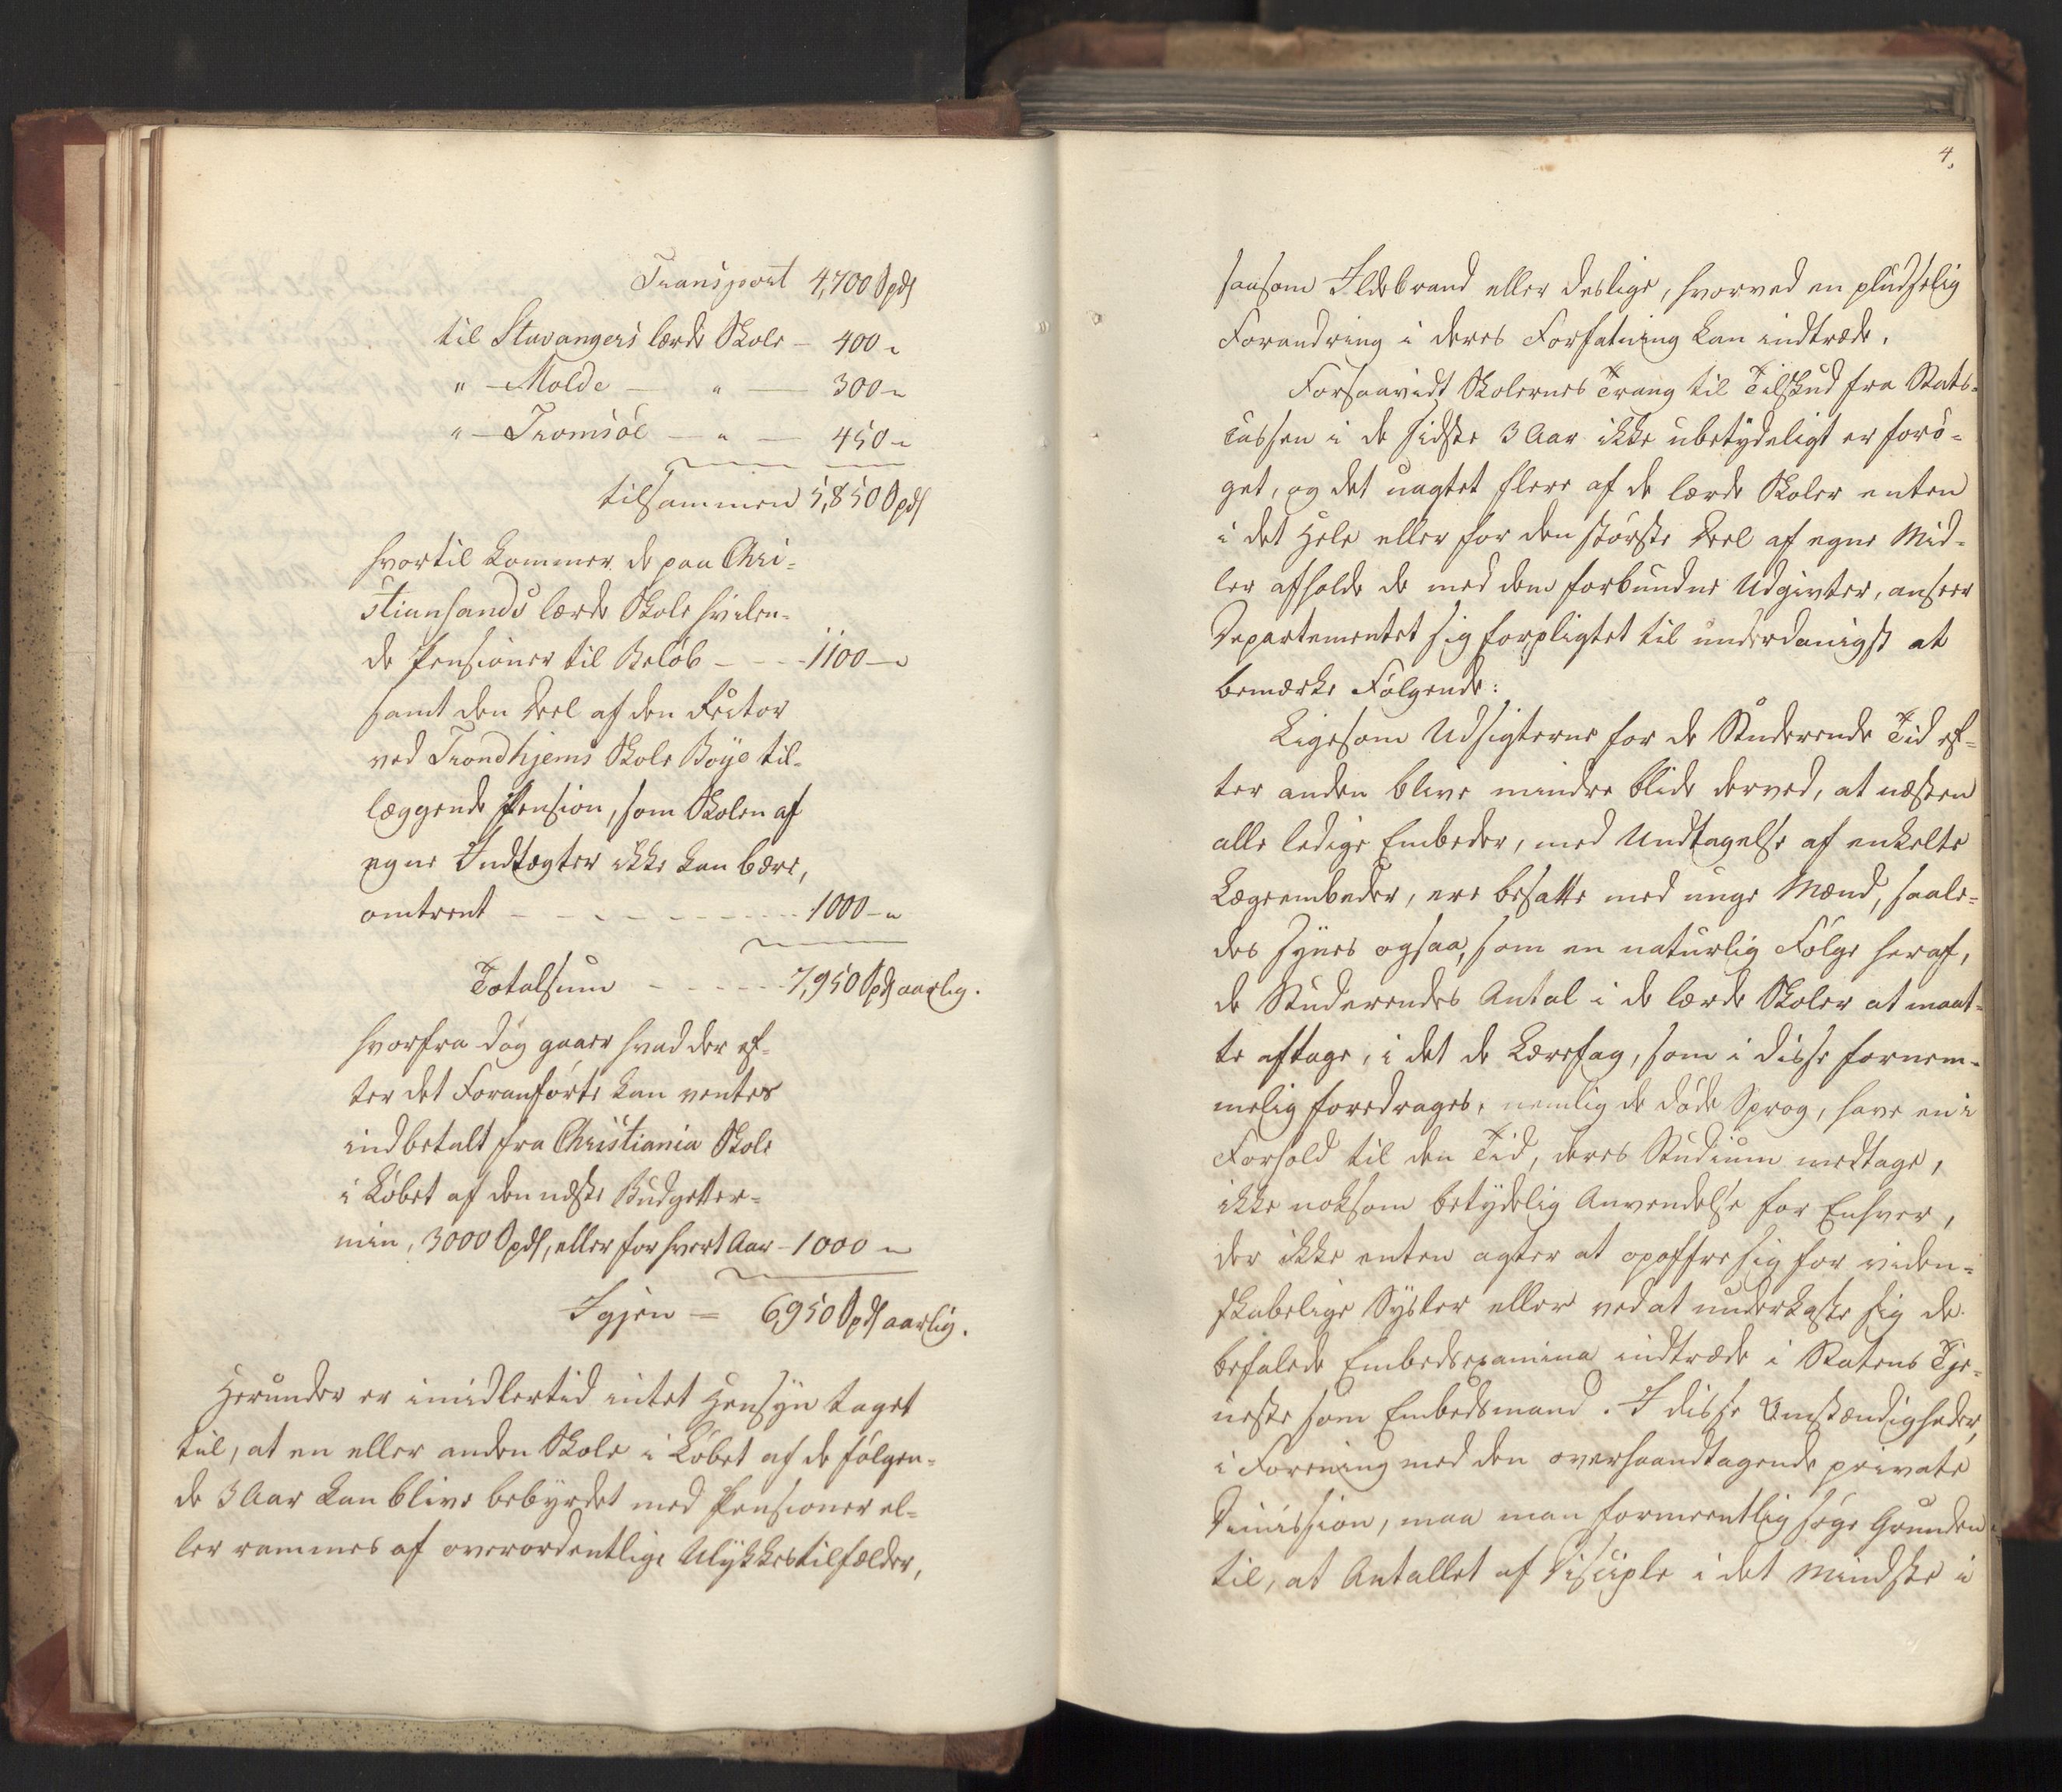 Transport 4,700 Spds
til Stavangers lærde Skole - 400 "
" - Molde - " - 300 "
" - Tromsöe - " - 450 "
tilsammen 5,850 Spds
hvortil kommer de paa Chri=
stiansands lærde Skole hvilen=
de Pensioner til Beløb - - - - 1100 - "
samt den Deel af den Rector
ved Trondhjems Skole Böye til=
læggende Pension, som Skolen af
egne Indtægter ikke kan bære,
omtrent - - - - - - - - - 1000 - "
Totalsum - - - - - 7,950 Spds aarlig.
hvorfra dog gaaer hvad der ef=
ter det Foranførte kan ventes
indbetalt fra Christiania Skole
i Løbet af den næste Budgetter=
min, 3000 Spds, eller for hvert Aar - 1000 "
Igjen = 6,950 Spds aarlig.
Herunder er imidlertid intet Hensyn taget
til, at en eller anden Skole i Løbet af de følgen=
de 3 Aar kan blive bebyrdet med Pensioner el=
ler rammes af overordentlige Ulykkestilfælder,
4.
saasom Ildebrand eller deslige, hvorved en pludselig
Forandring i deres Forfatning kan indtræde.
Forsaavidt Skolernes Trang til Tilskud fra Stats=
cassen i de sidste 3 Aar ikke ubetydeligt er forø=
get, og det uagtet flere af de lærde Skoler enten
i det Hele eller for den største Deel af egne Mid=
ler afholde de med dem forbundne Udgivter, anseer
Departementet sig forpligtet til underdanigst at
bemærke Følgende:
Ligesom Udsigterne for de Studerende Tid ef=
ter anden blive mindre blide derved, at næsten
alle ledige Embeder, med Undtagelse af enkelte
Lægeembeder, ere besatte med unge Mænd, saale=
des synes ogsaa, som en naturlig Følge heraf,
de Studerendes Antal i de lærde Skoler at maat=
te aftage, i det de Lærefag, som i disse fornem=
melig foredrages, nemlig de døde Sprog, have en i
Forhold til den Tid, deres Studium medtage,
ikke noksom betydelig Anvendelse for Enhver,
der ikke enten agter at opoffre sig for viden=
skabelige Sysler eller ved at underkaste sig de
befalede Embedsexamina indtræde i Statens Tje=
neste som Embedsmand. I disse Omstændigheder,
i Forening med den overhaandtagende private
Dimission, maa man formeentlig søge Grunden
til, at Antallet af Disciple i det mindste i